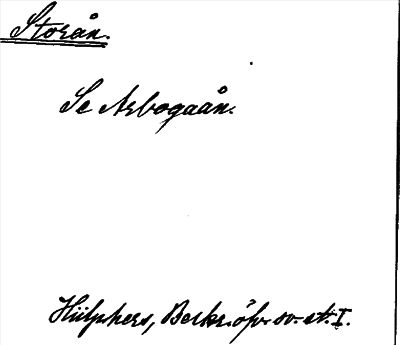 Storån.
Se Arbogaån.
Hülphers, Beskr. öfv. sv. st. I.